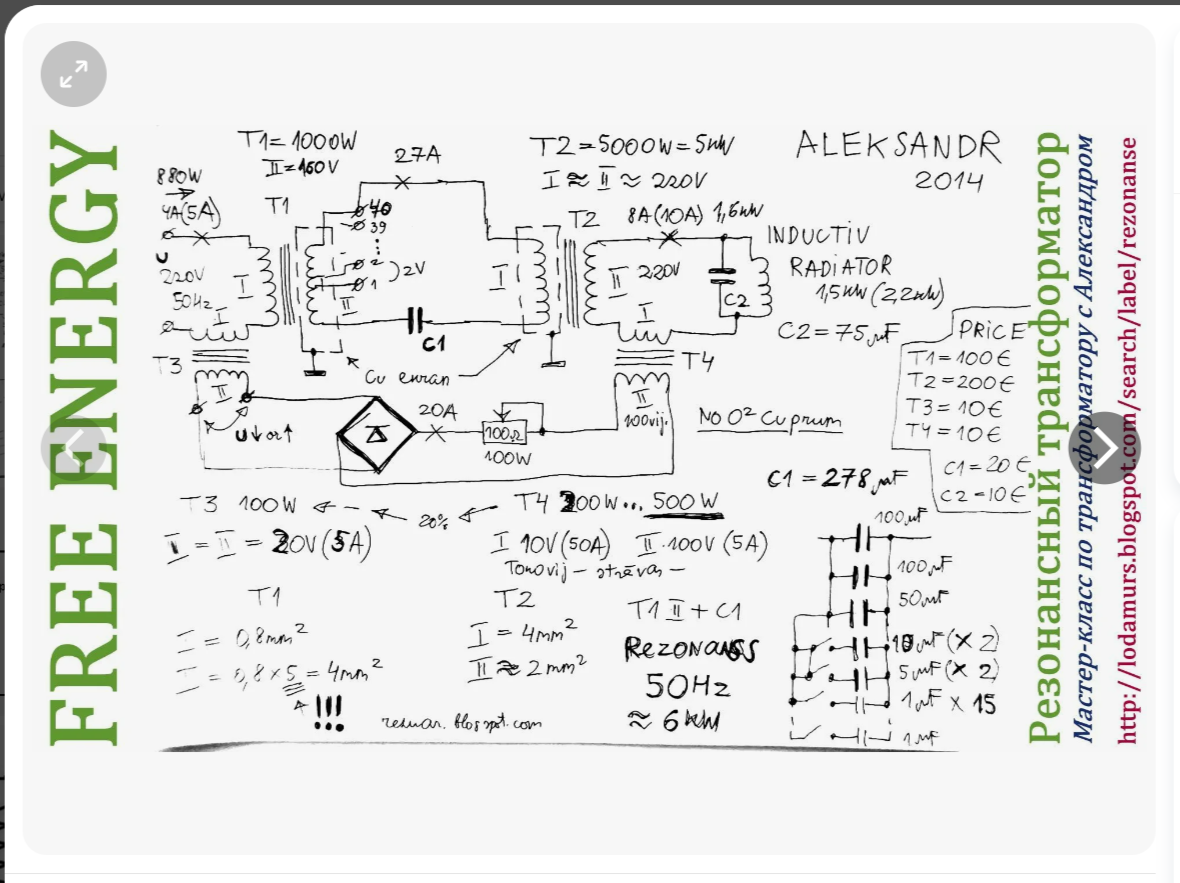 FREE ENERGY
T1=1000W
II=160V
27A
T2=5000W=5kW
I≈II≈220V
ALEKSANDR
2014
880W
4A(5A)
T1
40
39
2
1
)2V
T2
8A(10A) 1,6kW
INDUCTIV
RADIATOR
1,5kW (2,2kW)
U
220V
50Hz
I
I
II
C1
I
II
220V
I
C2
C2=75µF
PRICE
T1=100€
T2=200€
T3=10€
T4=10€
C1=20€
C2=10€
T3
II
Cu ekran
T4
II
100vij.
U↓or↑
20A
100Ω
100W
No O² Cuprum
C1=278µF
T3 100W
20%
T4 200W...500W
I=II=20V(5A)
I 10V(50A) II·100V(5A)
Tokovij – strāvas –
T1
I=0,8mm²
I=0,8x5=4mm²
!!!
T2
I=4mm²
II≈2mm²
T1 II+C1
REZONANSS
50Hz
≈6kW
100µF
100µF
50µF
10µF(X2)
5µF(X2)
1µF X 15
1µF
Резонансный трансформатор
Мастер-класс по трансформатору с Александром
http://lodamurs.blogspot.com/search/label/rezonanse